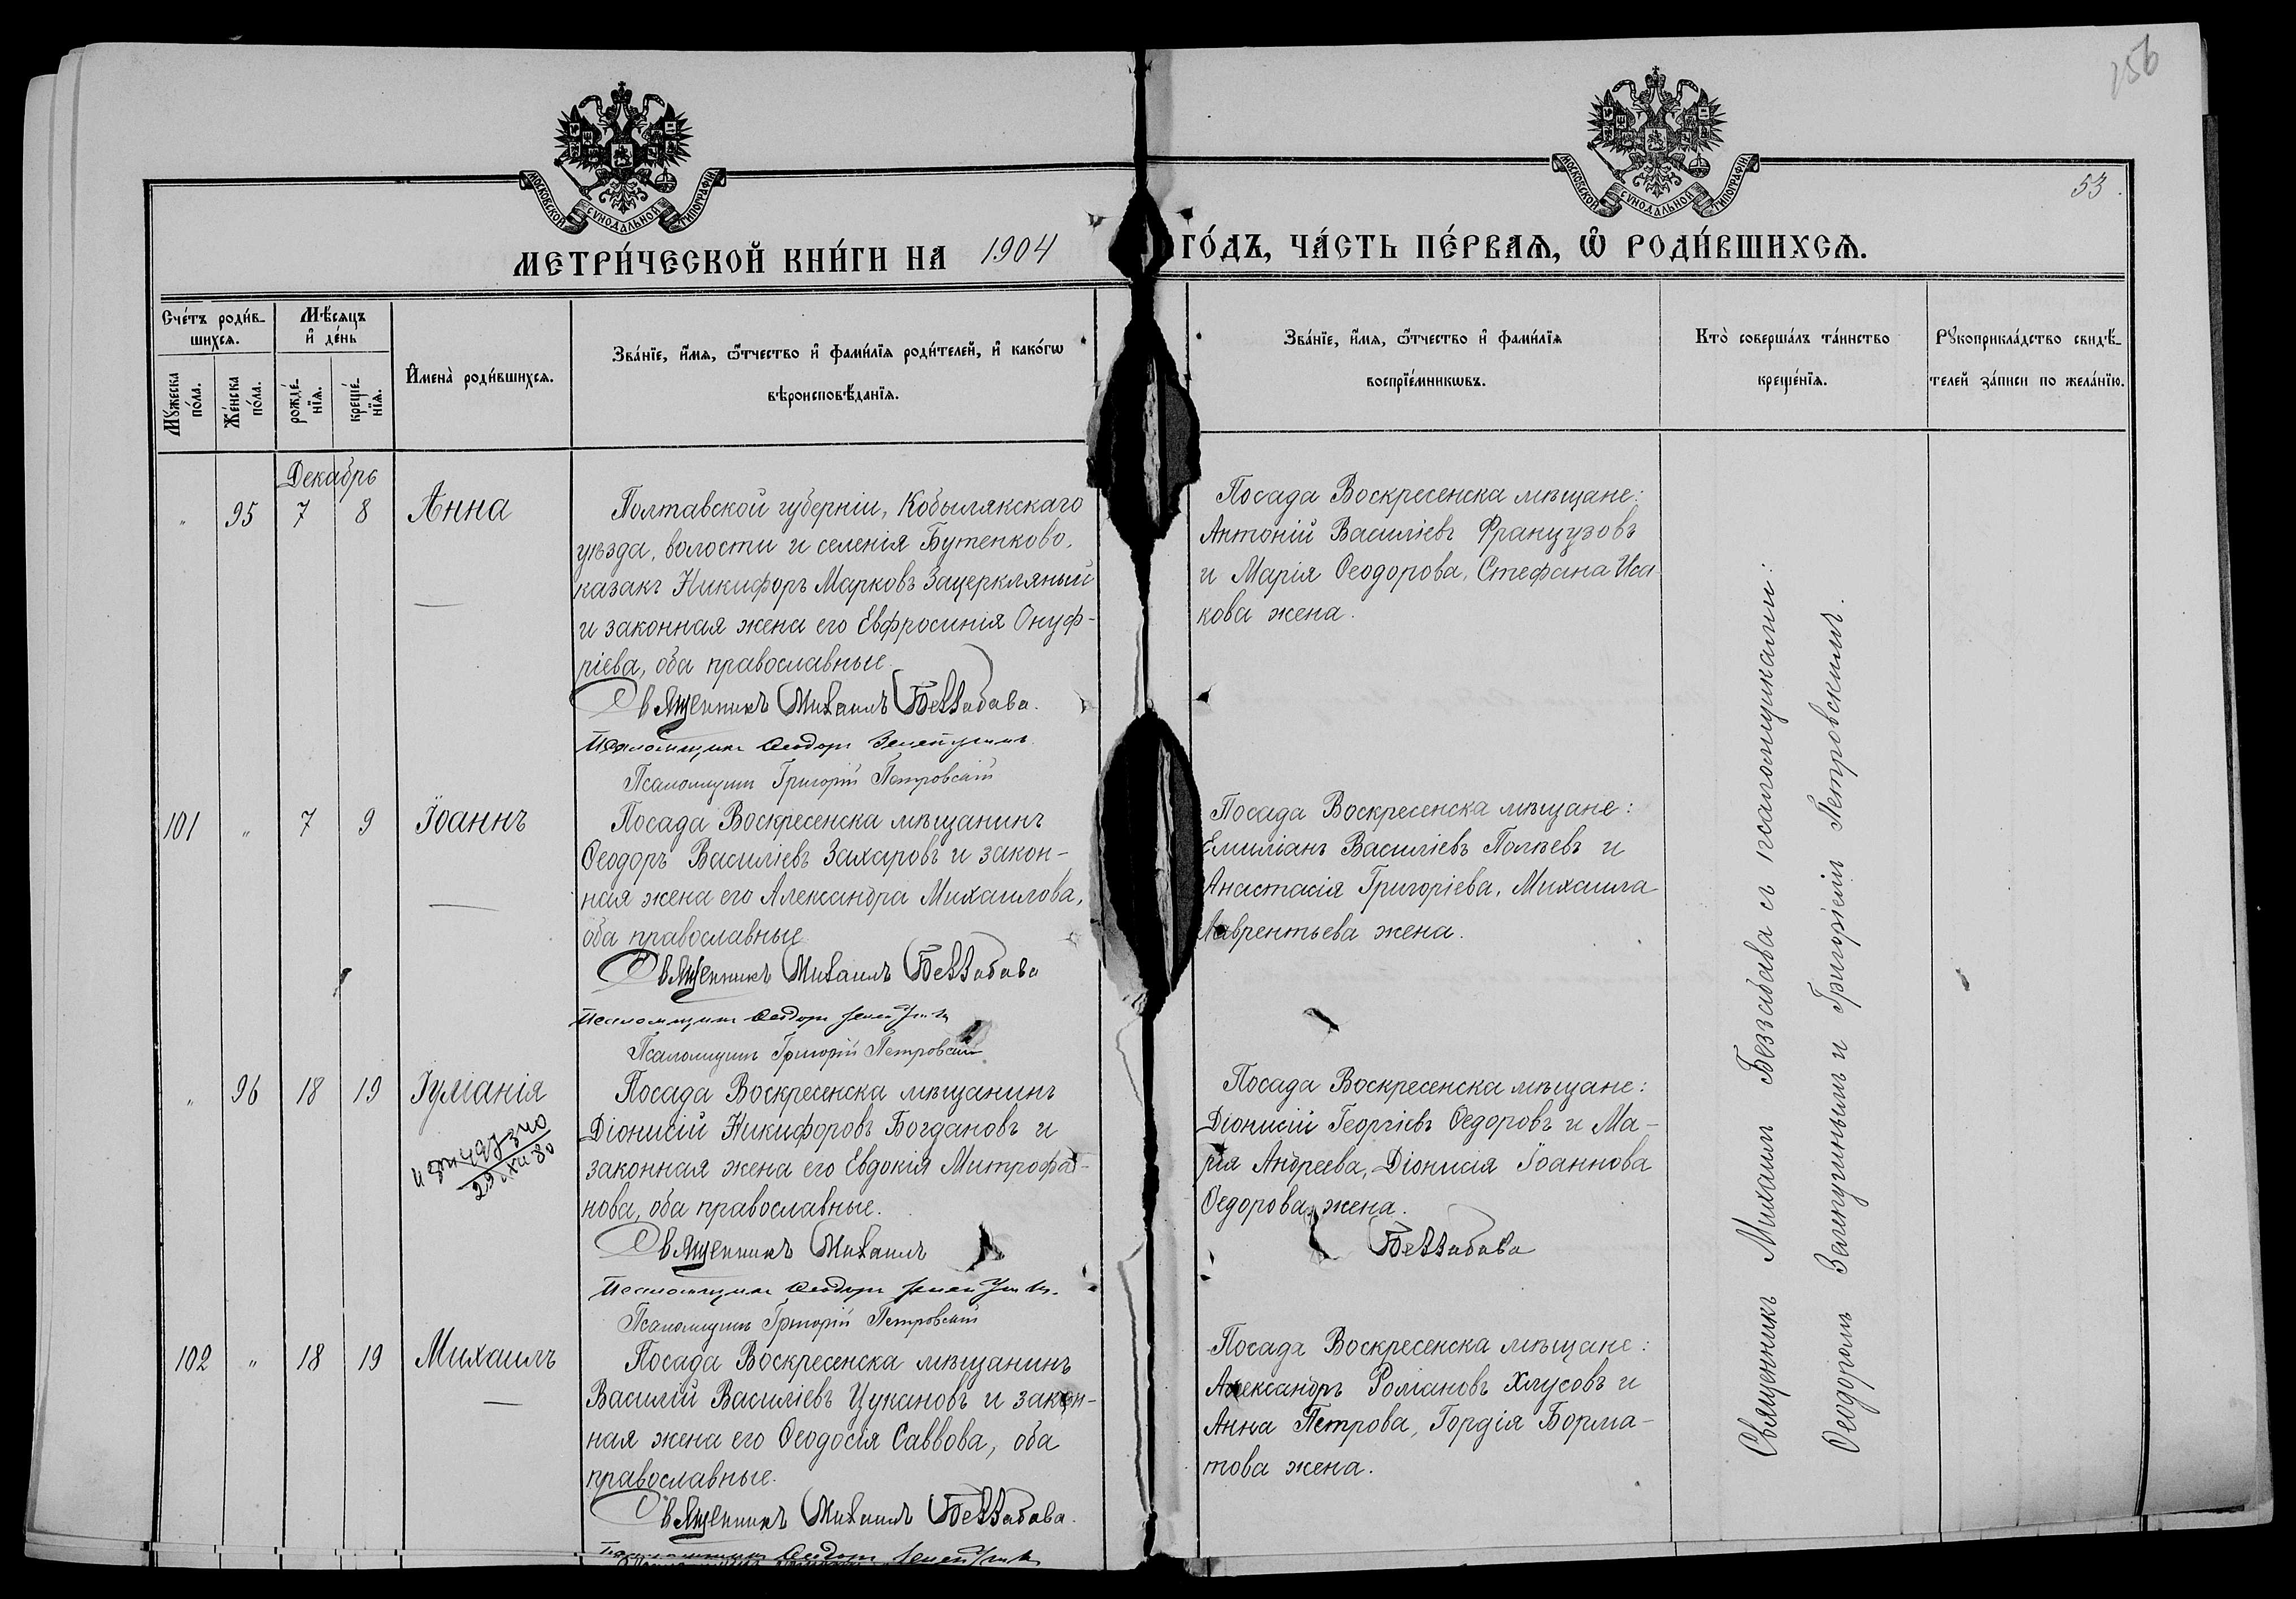 156
53.
МОСКОВСКОЙ СУНОДАЛЬНОЙ ТИПОГРАФІИ
МОСКОВСКОЙ СУНОДАЛЬНОЙ ТИПОГРАФІИ
МЕТРИ́ЧЕСКОЙ КНИ́ГИ НА 1904 ГО́ДЪ, ЧА́СТЬ ПЕ́РВАѦ, Ѡ҆ РОДИ́ВШИХСѦ.
Сче́тъ роди́в-
шихсѧ.
Мꙋжеска по́ла.
Же́нска по́ла.
Мѣ́сѧцъ
и҆ де́нь
рожде́-
нїѧ.
креще́-
нїѧ.
И҆мена̀ роди́вшихсѧ.
Зва́нїе, и҆́мѧ, ѻ҆́тчество и҆ фамі́лїѧ роди́телей, и҆ како́гѡ
вѣроисповѣ́данїѧ.
Зва́нїе, и҆́мѧ, ѻ҆́тчество и҆ фамі́лїѧ
воспрїе́мникѡвъ.
Кто̀ соверша́лъ та́инство
креще́нїѧ.
Рꙋкоприкла́дство свидѣ́-
телей за́писи по жела́нїю.
Декабрь
" 95 7 8 Анна
Полтавской губерніи, Кобылякскаго
уѣзда, волости и селенія Бутенково,
казакъ Никифоръ Марковъ Зацеркляный
и законная жена его Евфросинія Онуф-
ріева, оба православные.
Священникъ Михаилъ Беззабава.
Псаломщикъ Ѳеодоръ Зеленгинъ
Псаломщикъ Григорій Петровскій
Посада Воскресенска мѣщане:
Антоній Василіевъ Французовъ
и Марія Ѳеодорова, Стефана Иса
кова жена.
101 " 7 9 Іоаннъ
Посада Воскресенска мѣщанинъ
Ѳеодоръ Василіевъ Захаровъ и закон-
ная жена его Александра Михаилова,
оба православные
Священникъ Михаилъ Беззабава
Псаломщикъ Ѳеодоръ
Псаломщикъ Григорій Петровскій
Посада Воскресенска мѣщане:
Емиліанъ Василіевъ Полѣевъ и
Анастасія Григоріева, Михаила
Лаврентьева жена.
" 96 18 19 Іуліанія
29 XII 80
Посада Воскресенска мѣщанинъ
Діонисій Никифоровъ Богдановъ и
законная жена его Евдокія Митрофа-
нова, оба православные.
Священникъ Михаилъ Беззабава
Псаломщикъ Ѳеодоръ
Псаломщикъ Григорій Петровскій
Посада Воскресенска мѣщане:
Діонисій Георгіевъ Ѳедоровъ и Ма-
рія Андреева, Діонисія Іоаннова
Ѳедорова жена.
102 " 18 19 Михаилъ
Посада Воскресенска мѣщанинъ
Василій Василіевъ Цукановъ и закон-
ная жена его Ѳеодосія Саввова, оба
православные.
Священникъ Михаилъ Беззабава.
Псаломщикъ Ѳеодоръ
Посада Воскресенска мѣщане:
Александръ Романовъ Хлусовъ и
Анна Петрова, Гордія Борма-
това жена.
Священникъ Михаилъ Беззабава съ псаломщиками:
Ѳеодоромъ и Григоріемъ Петровскимъ.